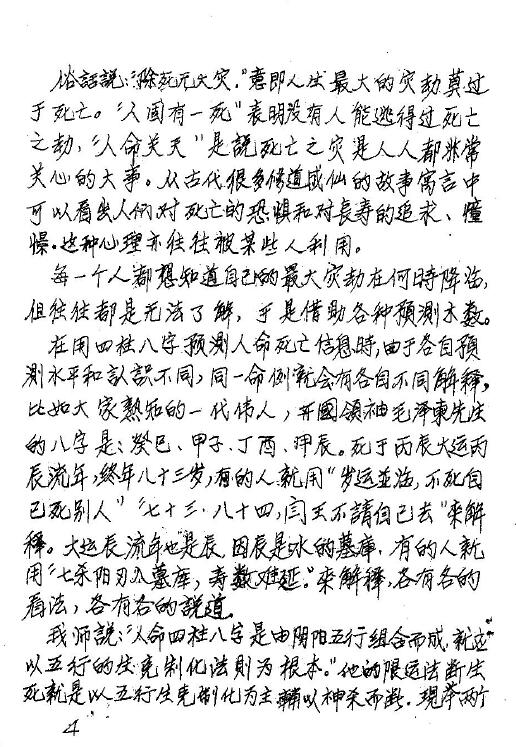 俗話説：“除死无大灾.”意即人生最大的灾劫莫过
于死亡。“人固有一死”表明没有人能逃得过死亡
之劫，“人命关天”是説死亡之灾是人人都非常
关心的大事。从古代很多修道成仙的故事寓言中
可以看出人们对死亡的恐惧和对長寿的追求、憧
憬.这种心理亦往往被某些人利用。
每一个人都想知道自己的最大灾劫在何時降临,
但往往都是无法了解，于是借助各种預測术数。
在用四柱八字預測人命死亡信息時,由于各自預
測水平和認識不同,同一命例就会有各自不同解釋,
比如大家熟知的一代偉人，开國领袖毛泽東先生
的八字是：癸巳、甲子、丁酉、甲辰。死于丙辰大运丙
辰流年,終年八十三岁,有的人就用“岁运並临,不死自
己死别人”“七十三.八十四,闫王不請自己去”來解
釋。大运辰流年也是辰,因辰是水的墓庫，有的人就
用“七杀阳刃入墓庫，寿数难延.”來解釋,各有各的
看法，各有各的説道。
我师説：“人命四柱八字是由阴阳五行組合而成,就应
以五行的生克制化法則为根本.”他的限运法断生
死就是以五行生克制化为主輔以神杀而断.現举两个
4